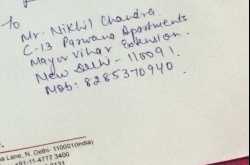 To
Mr. Nikhil Chandra
C-13 Parwana Apartments
Mayur Vihar Extension.
New Delhi - 110091.
Mob: 8285370940.
a Lane, N. Delhi- 110001(India)
+91-11-4777 3400